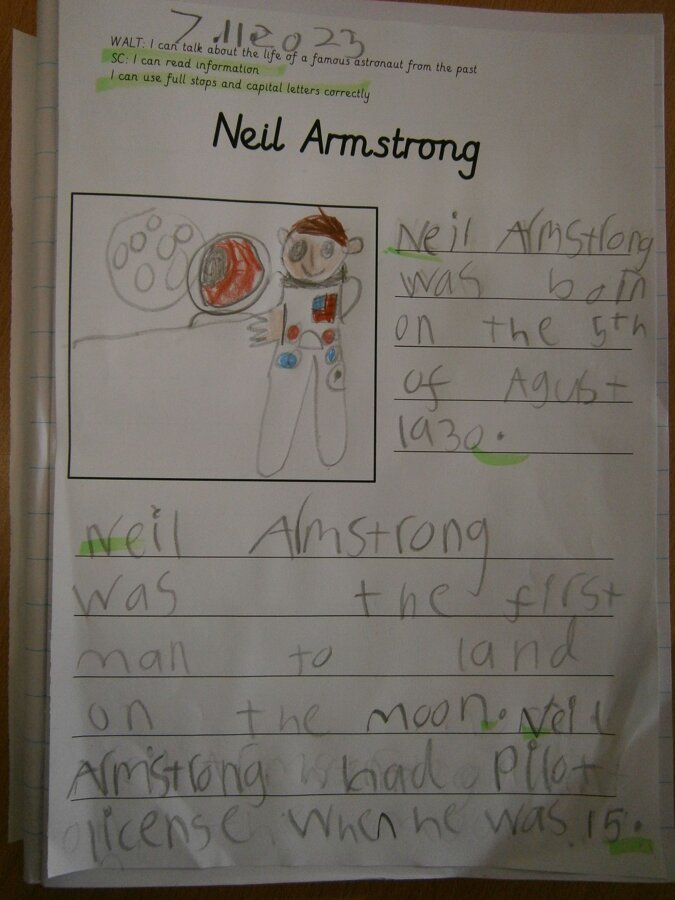 7.112023
WALT: I can talk about the life of a famous astronaut from the past
SC: I can read information
I can use full stops and capital letters correctly
Neil Armstrong
Neil Armstrong
was born
on the 5th
of Agust
1930.
Neil Armstrong
was the first
man to land
on the moon. Neil
Armstrong had pilot
license when he was 15.